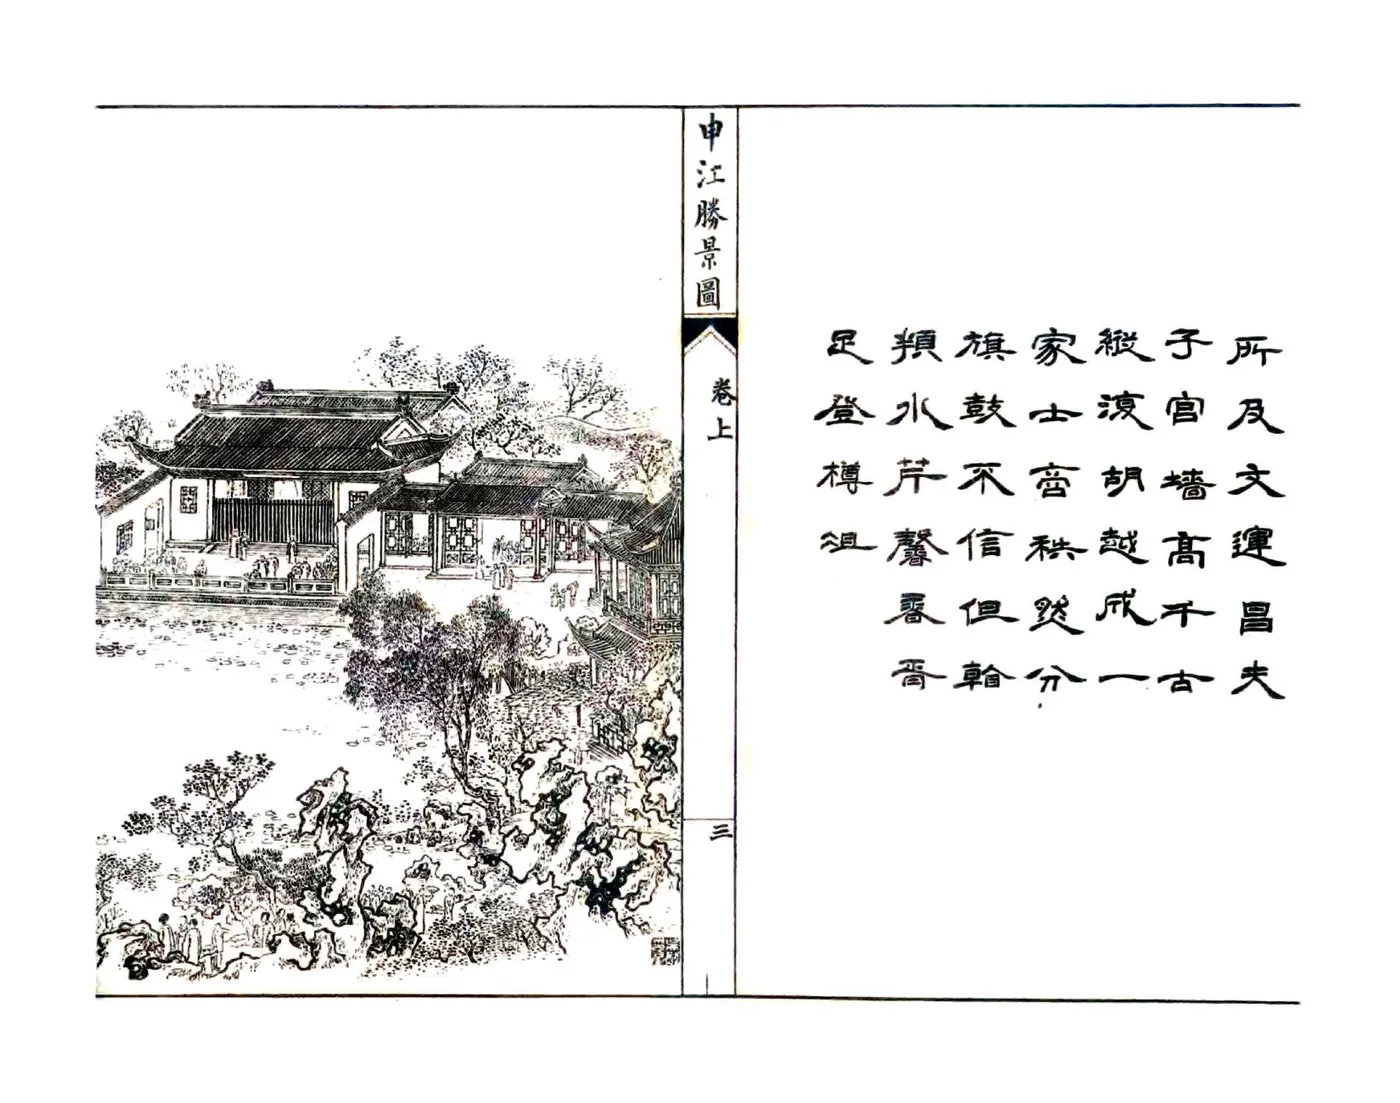 所及文運昌夫
子宮墻高千古
縱復胡越成一
家士商秩然分
旗鼓不信但看
頖水芹馨香胥
足登樽俎
申江勝景圖
卷上
三